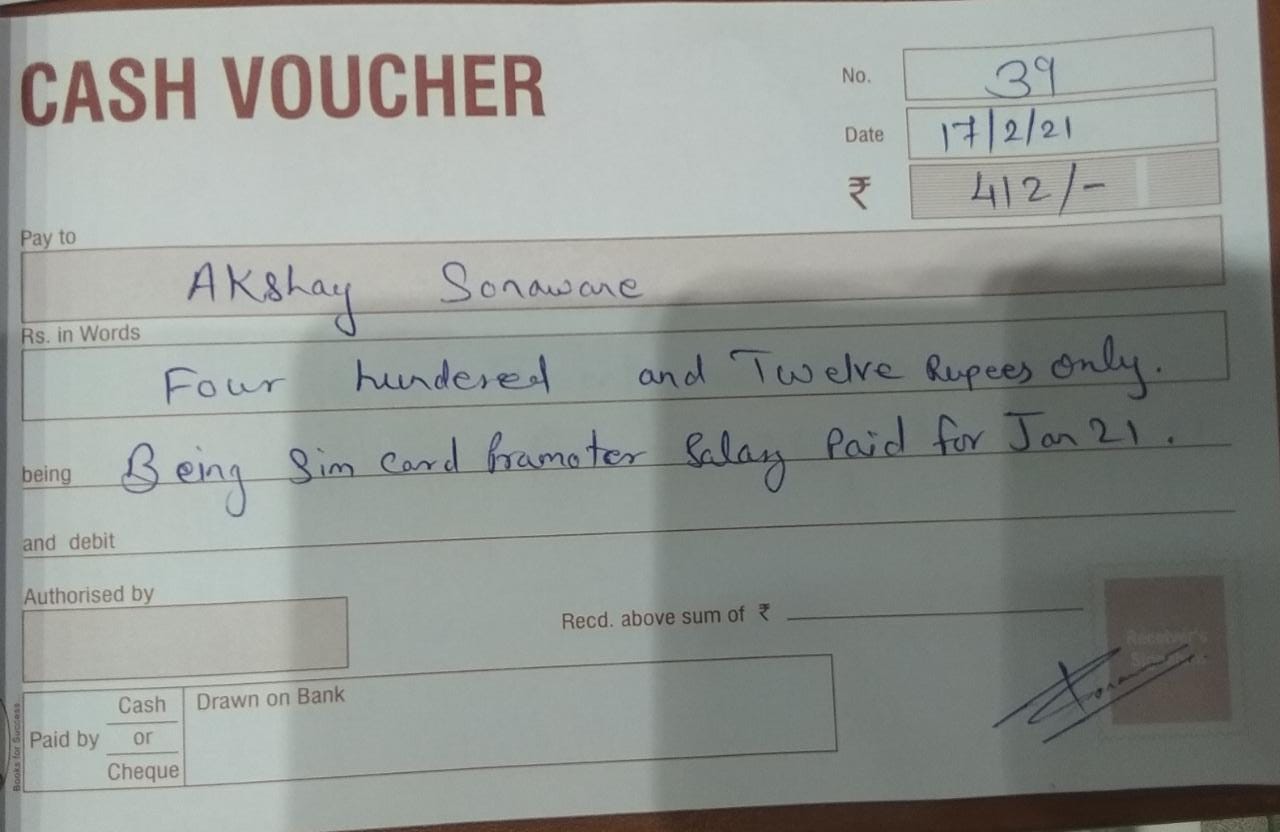 CASH VOUCHER
No. 39
Date 17/2/21
₹ 412/-
Pay to
Akshay Sonaware
Rs. in Words
Four hundered and Twelve Rupees only.
being Being Sim card Pramoter Salary Paid for Jan 21.
and debit
Authorised by
Recd. above sum of ₹
Receiver's
Paid by Cash or Cheque
Drawn on Bank
Books for Success